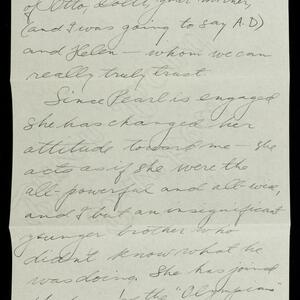 of Otto, Dotty, your mother,
(and I was going to say A.D)
and Helen - whom we can
really truly trust.
Since Pearl is engaged
she has changed her
attitude toward me - she
acts as if she were the
all-powerful and all-wise,
and I but an insignificant
younger brother who
didn't know what he
was doing. She has joined
the "Olympians"